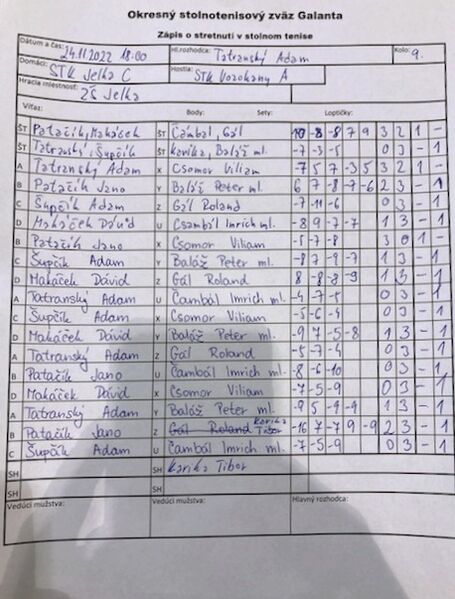 Okresný stolnotenisový zväz Galanta
Zápis o stretnutí v stolnom tenise
Dátum a čas: 24.11.2022 18.00 Hl.rozhodca: Tatranský Adam Kolo: 9.
Domáci: STK Jelka C Hostia: STK Vozokany A
Hracia miestnosť: ZŠ Jelka
Víťaz: Body: Sety: Loptičky:
ŠT Patačik, Makáček ŠT Čambal, Gál 10 -8 -8 7 9 3 2 1 -
ŠT Tatranský, Šupčík ŠT Karika, Baláž ml. -7 -3 -5 0 3 - 1
A Tatranský Adam X Csomor Viliam -7 5 7 -3 5 3 2 1 -
B Patačík Jano Y Baláž Peter ml. 6 7 -8 -7 -6 2 3 - 1
C Šupčík Adam Z Gál Roland -7 -11 -6 0 3 - 1
D Makáček Dávid U Csambál Imrich ml. -8 9 -7 -7 1 3 - 1
B Patačík Jano X Csomor Viliam -5 -7 -8 3 0 1 - 1
C Šupčík Adam Y Baláž Peter ml. -8 7 -9 -7 1 3 - 1
D Makáček Dávid Z Gál Roland 8 -8 -8 -9 1 3 - 1
A Tatranský Adam U Čambál Imrich ml. -4 -7 -5 0 3 - 1
C Šupčík Adam X Csomor Viliam -5 -6 -4 0 3 - 1
D Makáček Dávid Y Baláž Peter ml. -9 7 -5 -8 1 3 - 1
A Tatranský Adam Z Gál Roland -5 -7 -4 0 3 - 1
B Patačík Jano U Čambál Imrich ml. -8 -6 -10 0 3 - 1
D Makáček Dávid X Csomor Viliam -7 -5 -9 0 3 - 1
A Tatranský Adam Y Baláž Peter ml. -9 5 -9 -9 1 3 - 1
B Patačík Jano Z Gál Roland Karika Tibor -16 7 -7 9 -9 2 3 - 1
C Šupčík Adam U Čambál Imrich ml. -7 -5 -9 0 3 - 1
SH SH Karika Tibor
SH SH
Vedúci mužstva: Vedúci mužstva: Hlavný rozhodca: